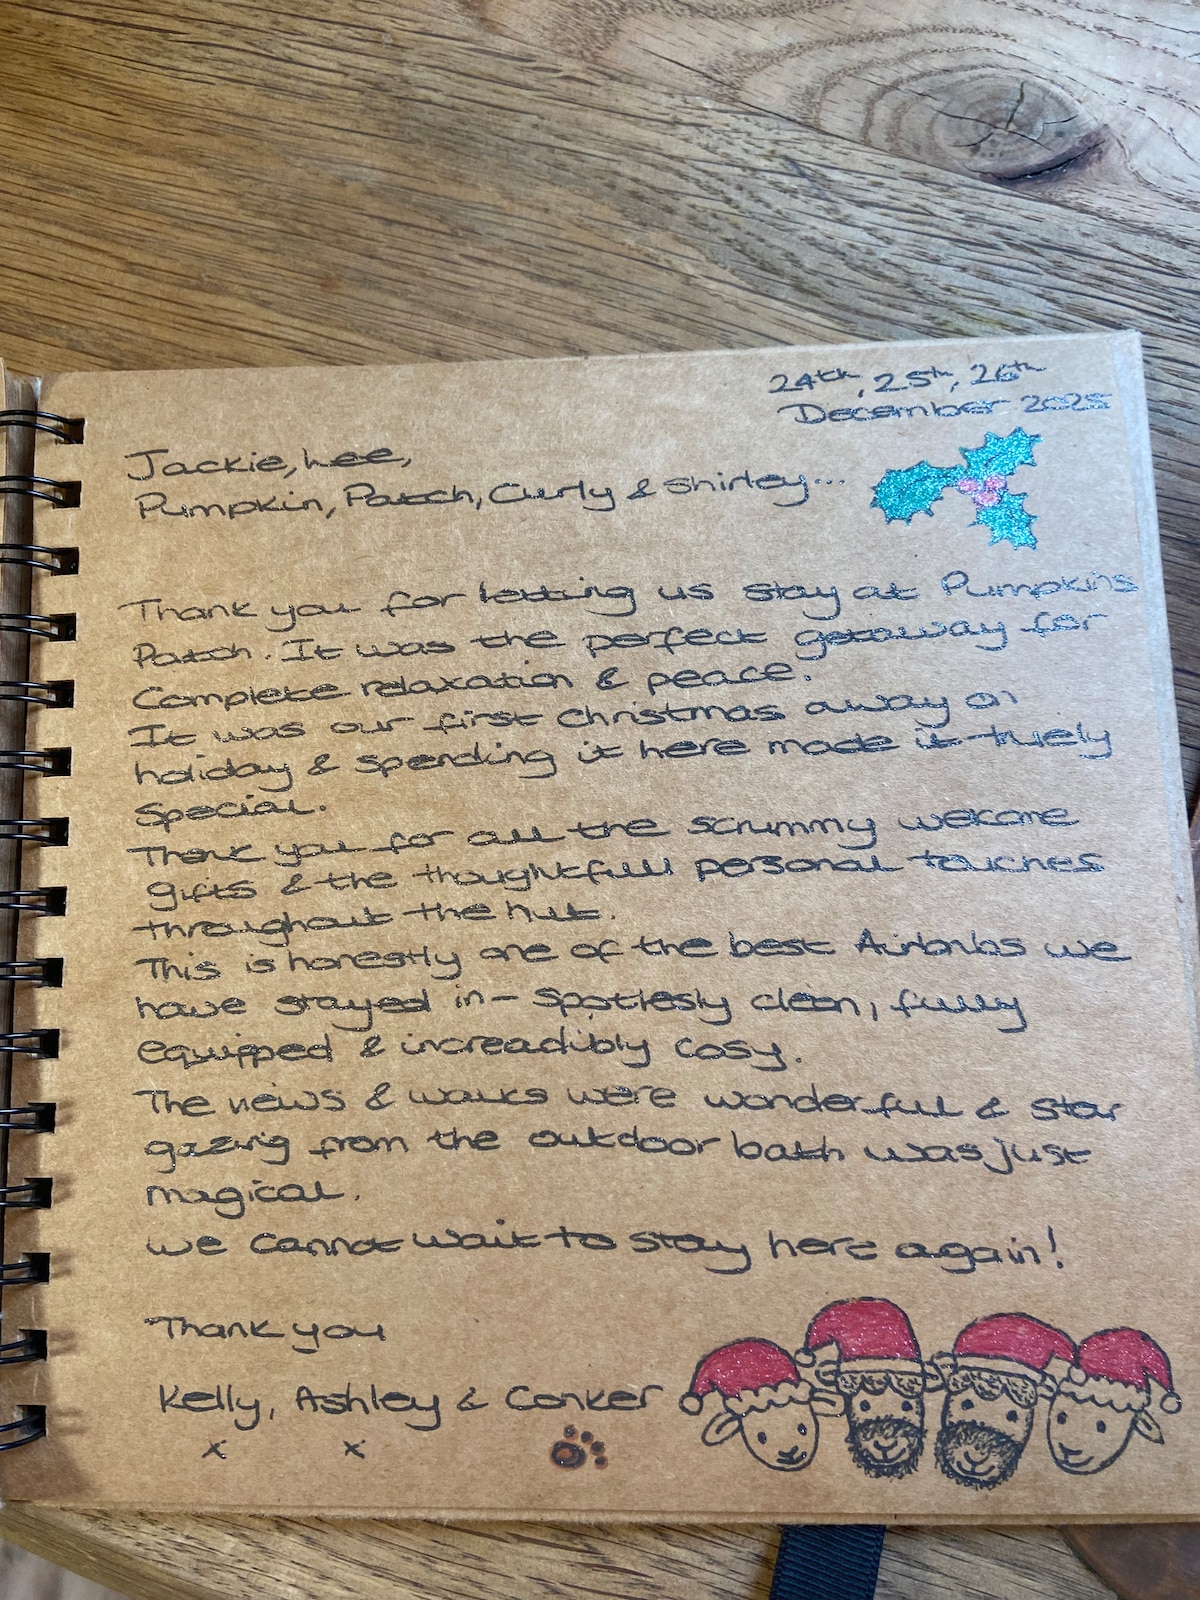 24th, 25th, 26th
December 2025
Jackie, Lee,
Pumpkin, Patch, Curly & Shirley...
Thank you for letting us stay at Pumpkins
Patch. It was the perfect getaway for
Complete relaxation & peace.
It was our first Christmas away on
holiday & spending it here made it truely
Special.
Thank you for all the scrummy welcome
gifts & the thoughtfull personal touches
throughout the hut.
This is honestly one of the best Airbnbs we
have stayed in - Spotlesly clean, fully
equipped & increadibly cosy.
The views & walks were wonderful & star
gazing from the outdoor bath was just
magical.
We cannot wait to stay here again!
Thank you
Kelly, Ashley & Conker
x x